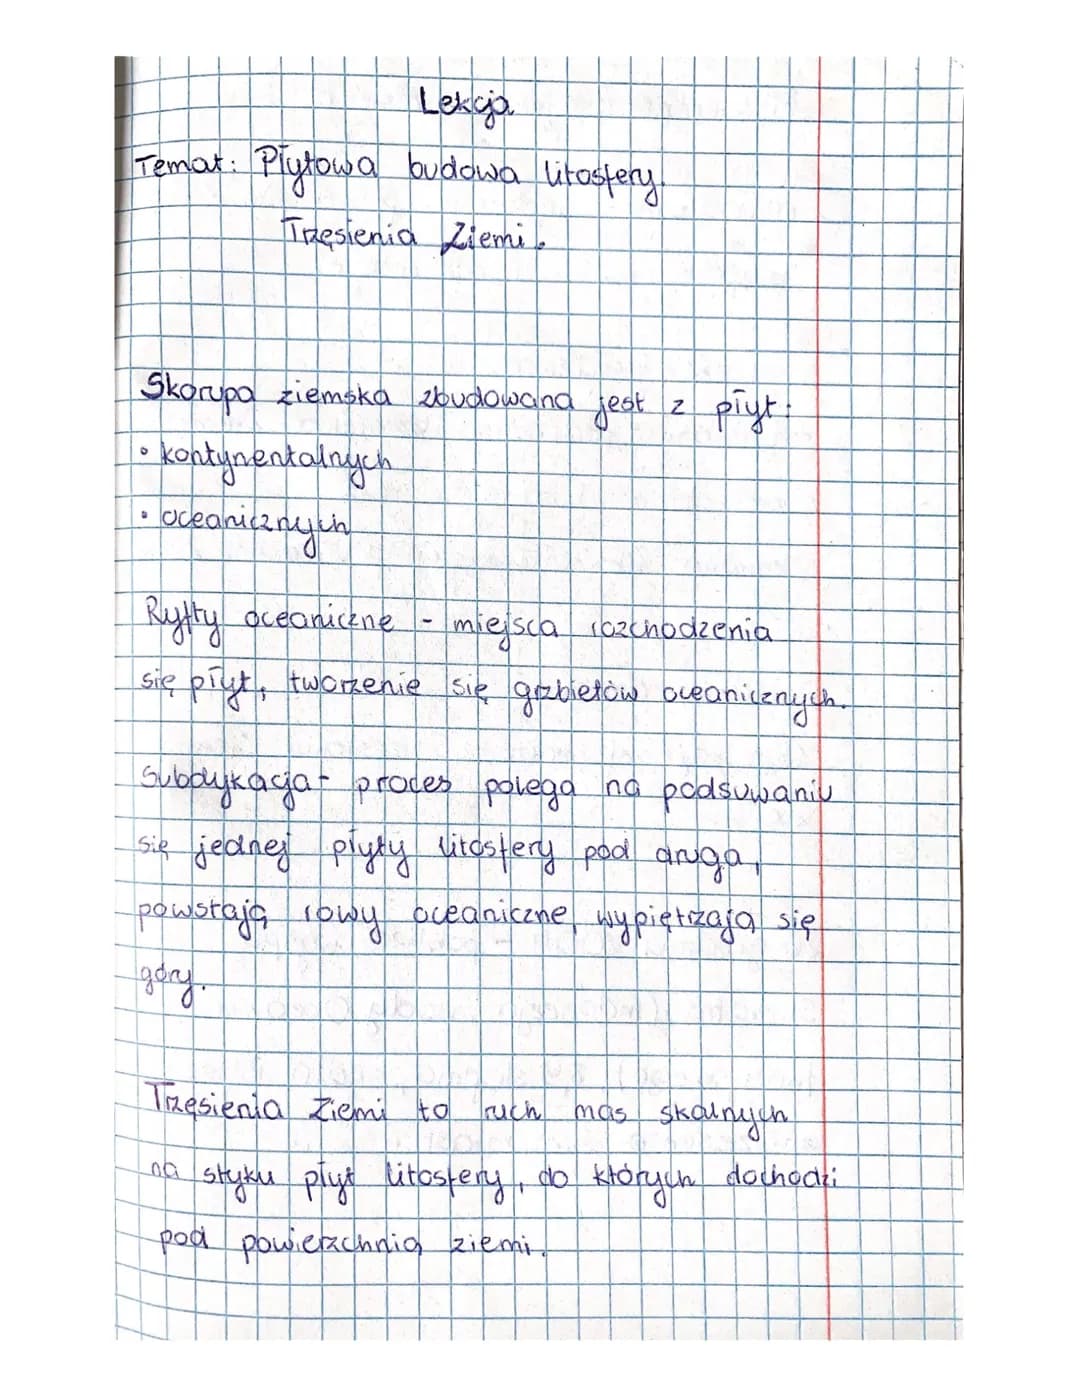 Lekcja
Temat: Płytowa budowa litosfery.
Trzęsienia Ziemi.
Skorupa ziemska zbudowana jest z płyt:
• kontynentalnych
• oceanicznych
Ryfty oceaniczne - miejsca rozchodzenia
się płyt, tworzenie się grzbietów oceanicznych.
Subdykacja - proces polega na podsuwaniu
się jednej płyty litosfery pod drugą,
powstają rowy oceaniczne, wypiętrzają się
góry.
Trzęsienia Ziemi to ruch mas skalnych
na styku płyt litosfery, do których dochodzi
pod powierzchnią ziemi.